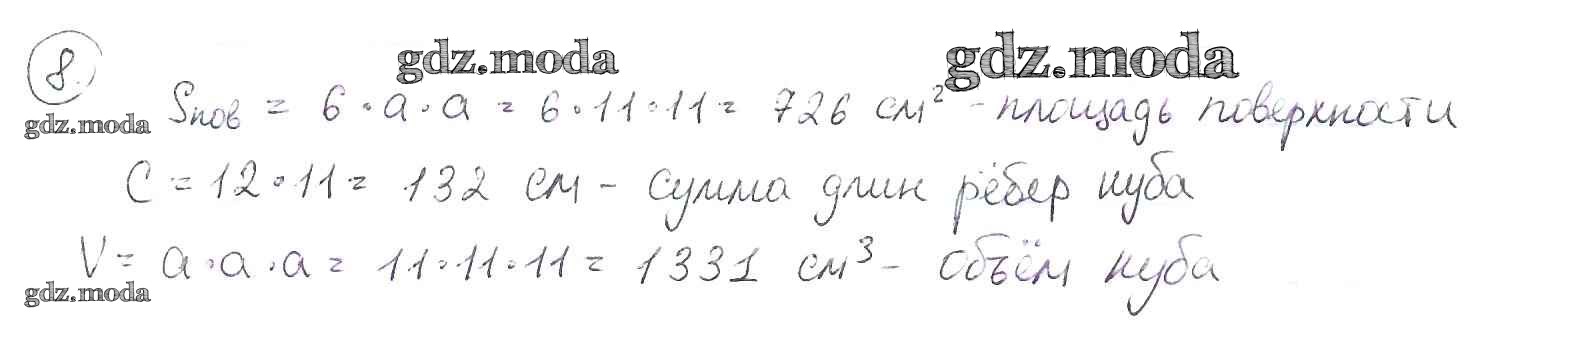 gdz.moda gdz.moda
8.
Sпов = 6 · a · a = 6 · 11 · 11 = 726 см² - площадь поверхности
gdz.moda
C = 12 · 11 = 132 см - сумма длин рёбер куба
V = a · a · a = 11 · 11 · 11 = 1331 см³ - объём куба
gdz.moda